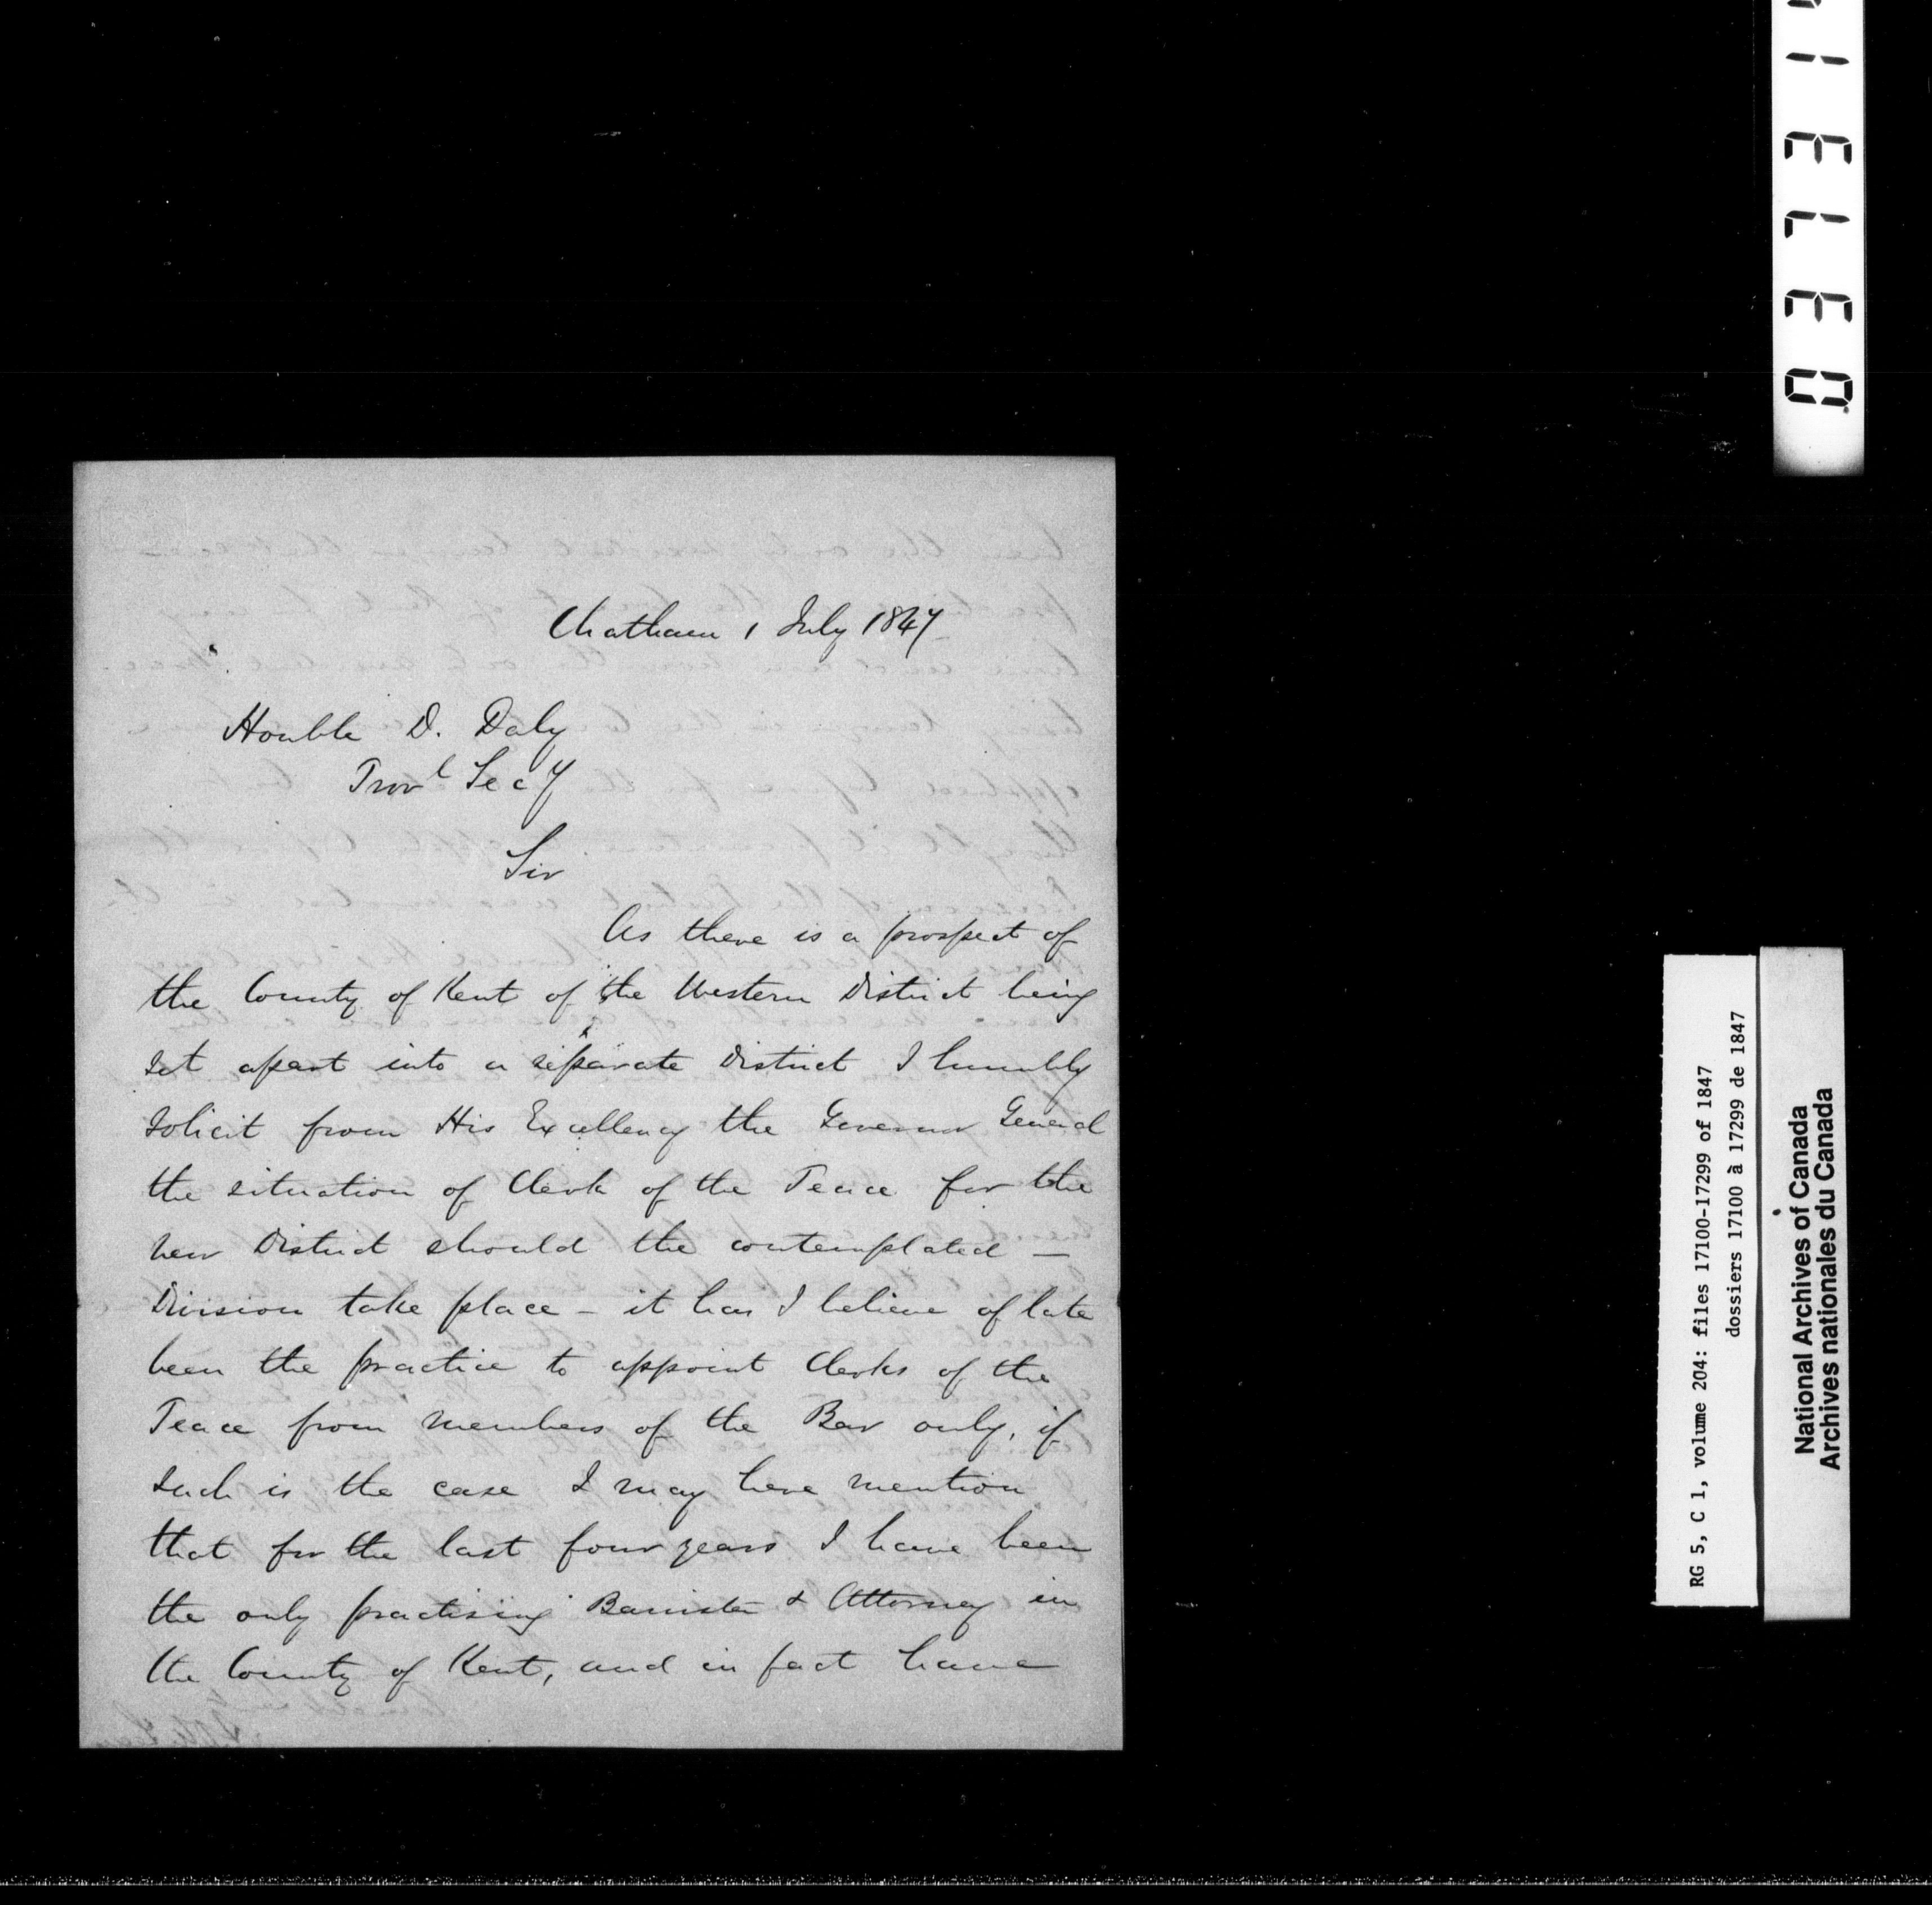 Chatham 1 July 1847
Honble D. Daly
Provl Secy
Sir
As there is a prospect of
the County of Kent of the Western District being
set apart into a separate District I humbly
solicit from His Excellency the Governor General
the situation of Clerk of the Peace for the
new District should the contemplated —
Division take place – it has I believe of late
been the practice to appoint Clerks of the
Peace from members of the Bar only, if
such is the case I may here mention
that for the last four years I have been
the only practising Barrister & Attorney in
the County of Kent, and in fact have
RG 5, C 1, volume 204: files 17100-17299 of 1847
dossiers 17100 à 17299 de 1847
National Archives of Canada
Archives nationales du Canada